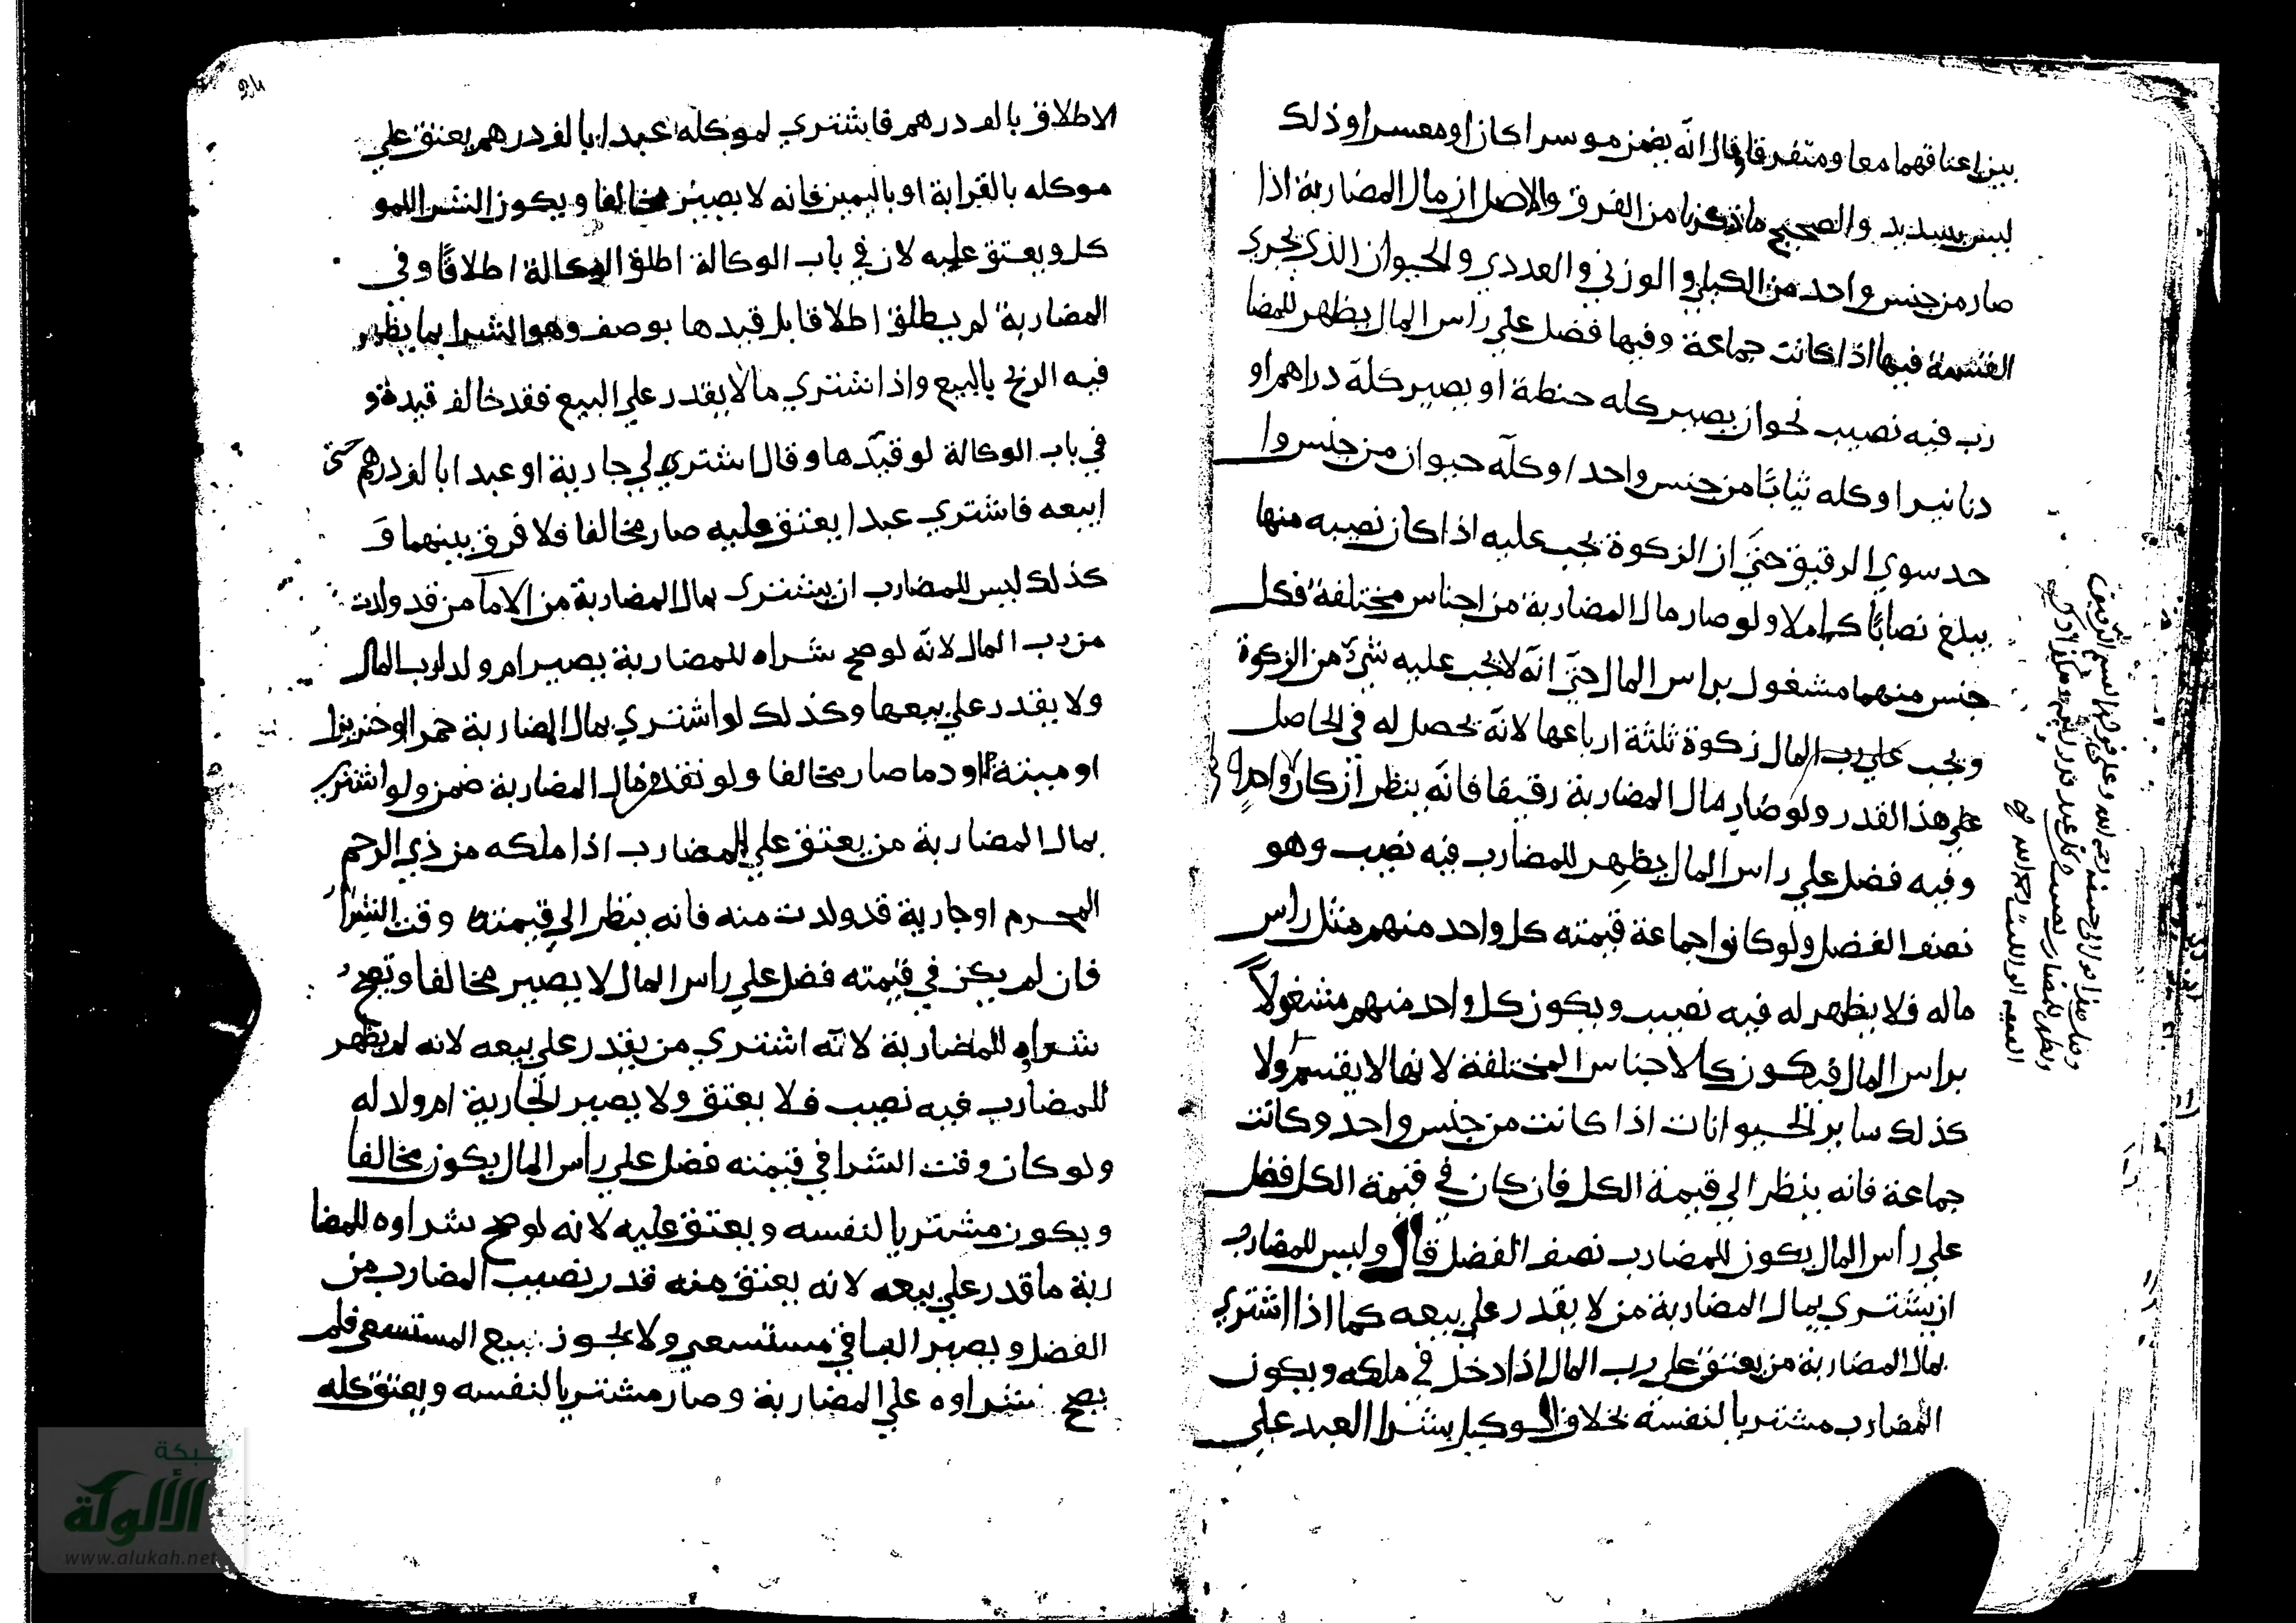 بين اعتاقهما معا ومتفرقا وقال انه يضمن موسرا كان او معسرا وذلك
ليس بسديد والصحيح ما ذكرنا من الفرق والاصل ان مال المضاربة اذا
صار من جنس واحد من الكيلي والوزني والعددي والحيوان الذي يجري
القسمة فيها اذا كانت جماعة وفيها فضل علي راس المال يظهر للمضا
رب فيه نصيب نحو ان يصير كله حنطة او يصير كله دراهم او
دنانير او كله ثيابًا من جنس واحد او كله حيوان من جنس وا
حد سوي الرقيق حتي ان الزكوة يجب عليه اذا كان نصيبه منها
يبلغ نصابًا كاملا ولو صار مال المضاربة من اجناس مختلفة فكل
جنس منهما مشغول براس المال حتي انه لا يجب عليه شيء من الزكوة
ويجب علي رب المال زكوة ثلثة ارباعها لانه يحصل له في الحاصل
علي هذا القدر ولو صار مال المضاربة رقيقا فانه ينظر ان كان واحدا
وفيه فضل علي راس المال يظهر للمضارب فيه نصيب وهو
نصف الفضل ولو كانوا جماعة قيمته كل واحد منهم مثل راس
ماله فلا يظهر له فيه نصيب ويكون كل واحد منهم مشغولاً
براس المال فيكون كالاجناس المختلفة لانها لا يقسم ولا
كذلك ساير الحيوانات اذا كانت من جنس واحد وكانت
جماعة فانه ينظر الي قيمة الكل فان كان في قيمة الكل فضل
علي راس المال يكون للمضارب نصف الفضل قال وليس للمضارب
ان يشتري بمال المضاربة من لا يقدر علي بيعه كما اذا اشتري
بمال المضاربة من يعتق علي رب المال اذا دخل في ملكه ويكون
المضارب مشتريا لنفسه بخلاف الوكيل بشرا العبد علي
الاطلاق بالف درهم فاشتري لموكله عبدا بالف درهم يعتق علي
موكله بالقرابة او باليمين فانه لا يصير مخالفا ويكون الشرا للمو
كل ويعتق عليه لان في باب الوكالة اطلق الوكالة اطلاقًا وفي
المضاربة لم يطلق اطلاقا بل قيدها بوصف وهو الشرا بما يظهر
فيه الربح بالبيع واذا اشتري ما لا يقدر علي البيع فقد خالف قيده و
في باب الوكالة لو قيدها وقال اشتري لي جارية او عبدا بالف درهم حتى
ابيعه فاشتري عبدا يعتق عليه صار مخالفا فلا فرق بينهما و
كذلك ليس للمضارب ان يشتري بمال المضاربة من الاما من قد ولدت
من رب المال لانه لو صح شراه للمضاربة يصير ام ولد لرب المال
ولا يقدر علي بيعها وكذلك لو اشتري بمال المضاربة خمرا او خنزيرا
او ميتة او دما صار مخالفا ولو نقد مال المضاربة ضمن ولو اشتري
بمال المضاربة من يعتق علي المضارب اذا ملكه من ذي الرحم
المحرم او جارية قد ولدت منه فانه ينظر الي قيمته وقت الشرا
فان لم يكن في قيمته فضل علي راس المال لا يصير مخالفا ويصح
شراه للمضاربة لانه اشتري من يقدر علي بيعه لانه لم يظهر
للمضارب فيه نصيب فلا يعتق ولا يصير الجارية ام ولد له
ولو كان وقت الشرا في قيمته فضل علي راس المال يكون مخالفا
ويكون مشتريا لنفسه ويعتق عليه لانه لو صح شراوه للمضا
ربة ما قدر علي بيعه لانه يعتق منه قدر نصيب المضارب من
الفضل ويصير الباقي مستسعي ولا يجوز بيع المستسعي فلم
يصح شراوه علي المضاربة وصار مشتريا لنفسه ويعتق كله
شبكة
الألوكة
www.alukah.net